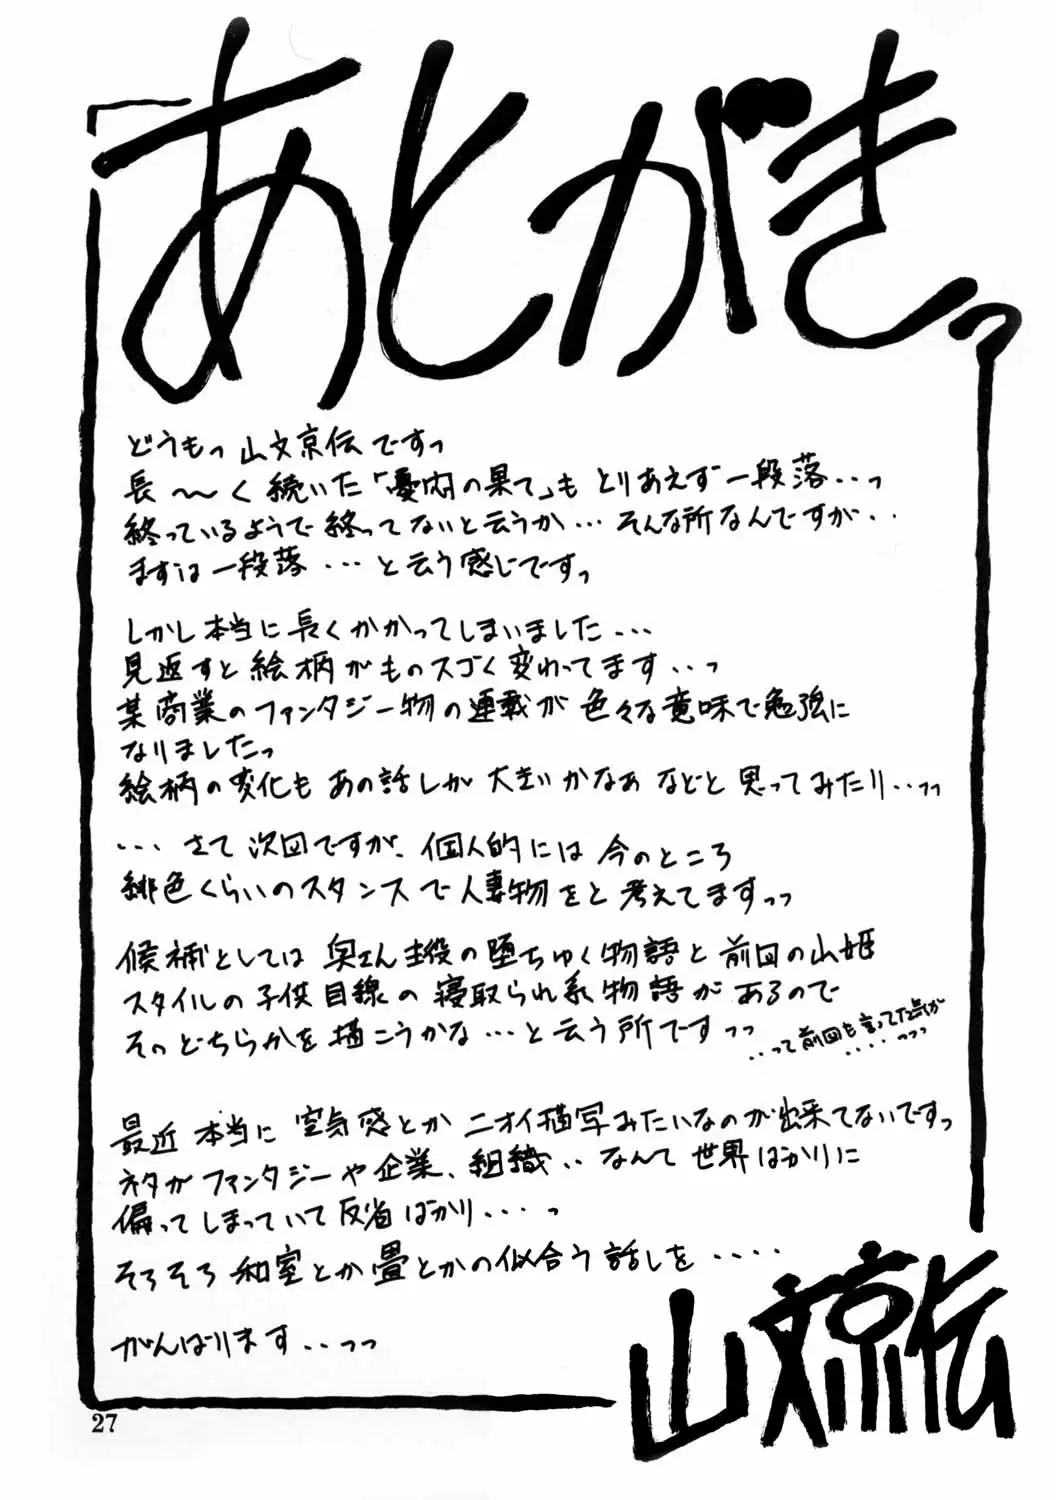 あとがきっ
どうもっ 山文京伝ですっ
長〜〜く続いた「憂肉の果て」も とりあえず一段落‥っ
終っているようで終ってないと云うか… そんな所なんですが‥
まずは一段落…と云う感じですっ
しかし本当に長くかかってしまいました…
見返すと絵柄がものスゴく変わってます‥っ
某商業のファンタジー物の連載が色々な意味で勉強に
なりましたっ
絵柄の変化も あの話しが 大きいかなあ などと 思ってみたり‥っっ
… さて 次回ですが、個人的には 今のところ
緋色くらいのスタンスで人妻物をと考えてますっっ
候補としては 奥さん主役の堕ちゆく物語と 前回の山姫
スタイルの子供目線の寝取られ系物語があるので
そのどちらかを描こうかな…と云う所ですっっ
‥って前回も言ってた気が
‥‥っっっ
最近 本当に 空気感とか ニオイ描写みたいなのが出来てないですっ
ネタがファンタジーや企業、組織‥なんて世界ばかりに
偏ってしまっていて反省ばかり‥‥っ
そろそろ 和室とか畳とかの似合う話しを‥‥
がんばります‥っっ
山文京伝
27